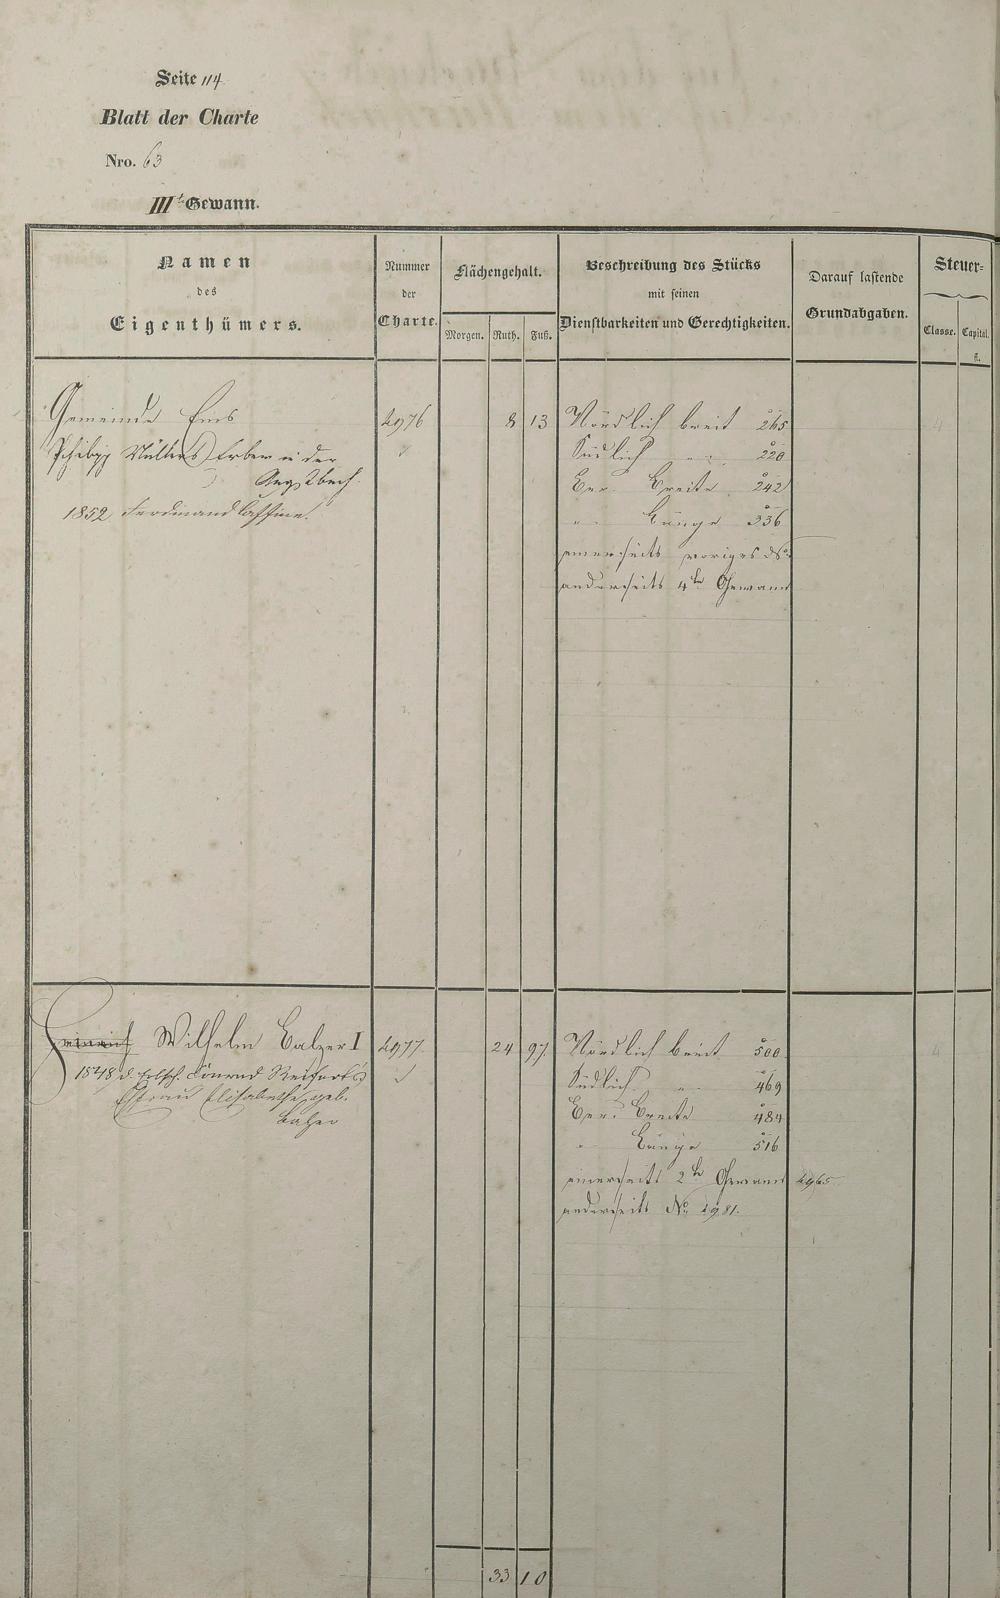 Seite 114
Blatt der Charte
Nro. 63
III t Gewann.
Namen
des
Eigenthümers.
Nummer
der
Charte.
Flächengehalt.
Morgen. Ruth. Fuß.
Beschreibung des Stücks
mit seinen
Dienstbarkeiten und Gerechtigkeiten.
Darauf lastende
Grundabgaben.
Steuer-
Classe. Capital.
fl.
Gemeinde Ems 2976 8 13 Nördlich breit 265
Philipp Müllers Erben in der Südlich " 220
Ber. Breite 242
1852 Ferdinand " Länge 336
einerseits voriges
anderseits 4te Gewann
4
Heinrich Wilhelm Balzer I 2977 24 97 Nördlich breit 500
4
1848 d. Conrad Reichert's Südlich " 469
Ehefrau Elisabethe, geb. Ber. Breite 484
Balzer " Länge 516
einerseits 2te Gewann 2965
anderseits No. 2981.
33 10